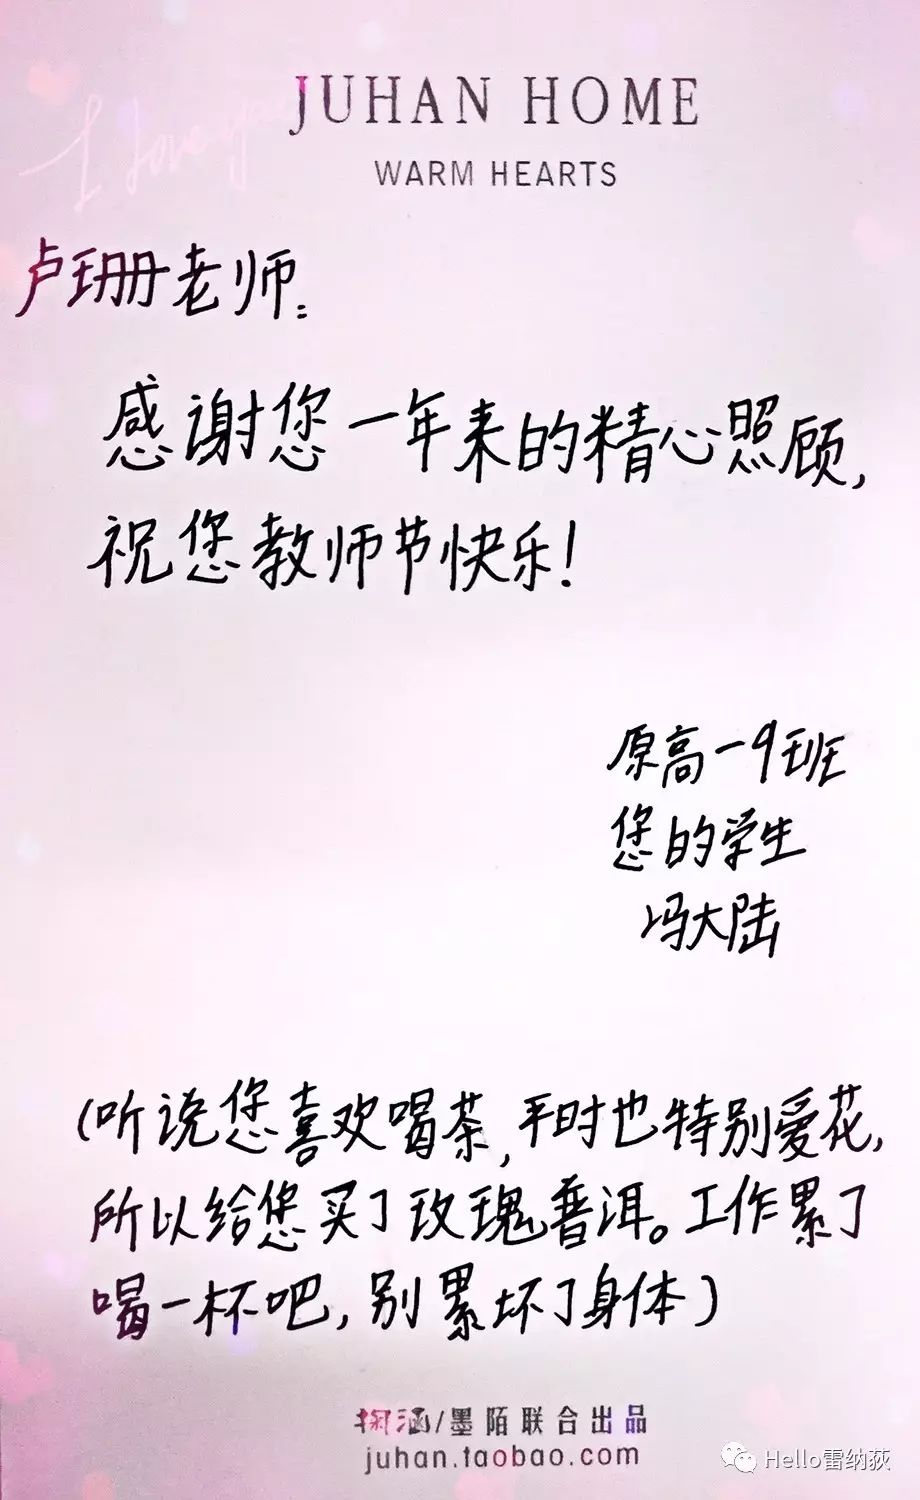 I love you
JUHAN HOME
WARM HEARTS
卢珊老师:
感谢您一年来的精心照顾,
祝您教师节快乐!
原高一9班
您的学生
冯大陆
(听说您喜欢喝茶,平时也特别爱花,
所以给您买了玫瑰普洱。工作累了
喝一杯吧,别累坏了身体)
掬涵/墨陌联合出品
juhan.taobao.com
Hello雷纳荻